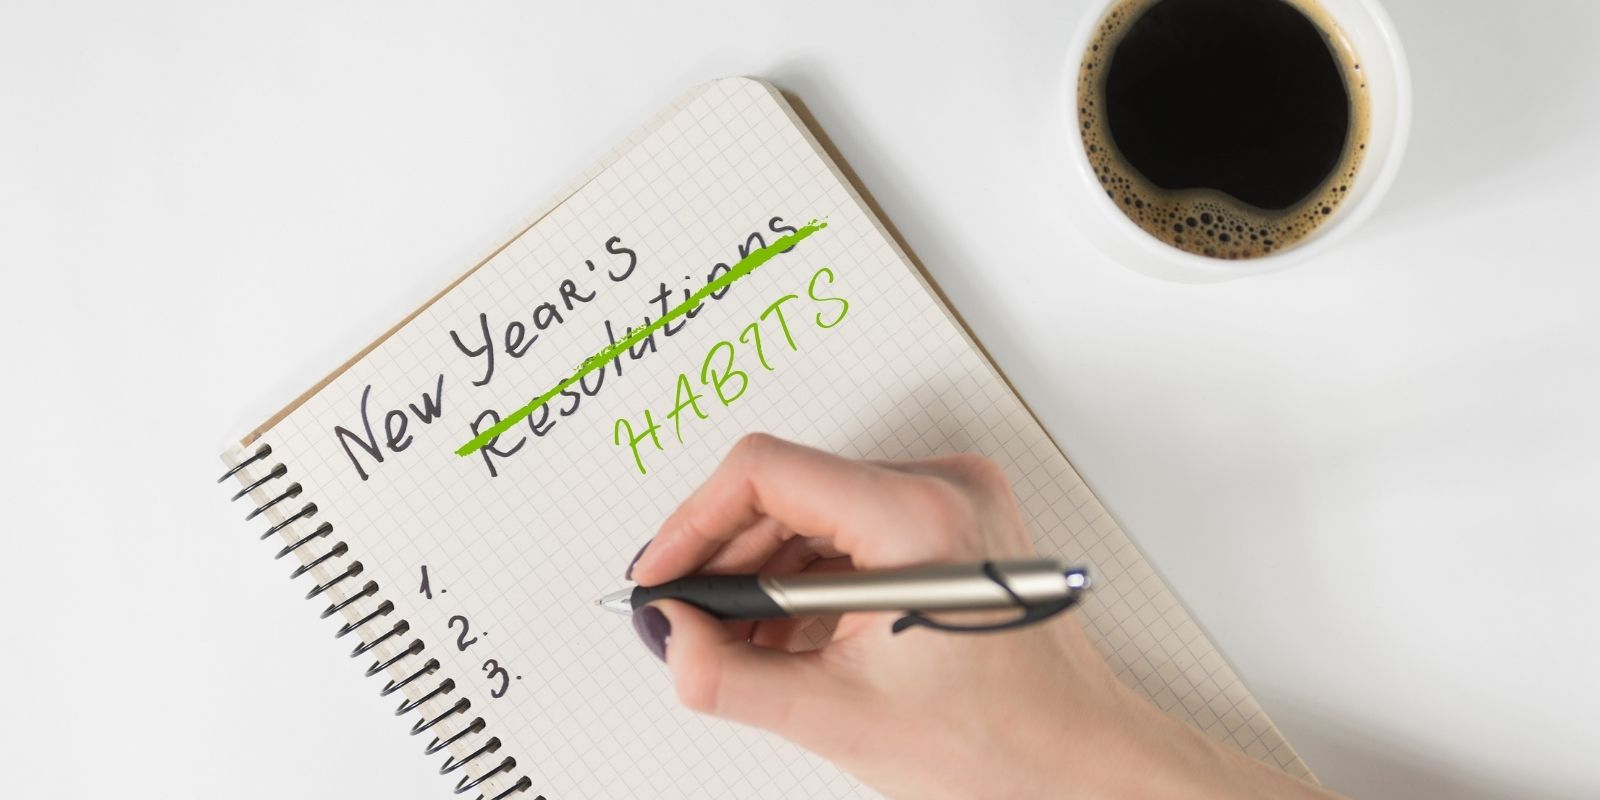 New Year's
Resolutions
HABITS
1.
2.
3.